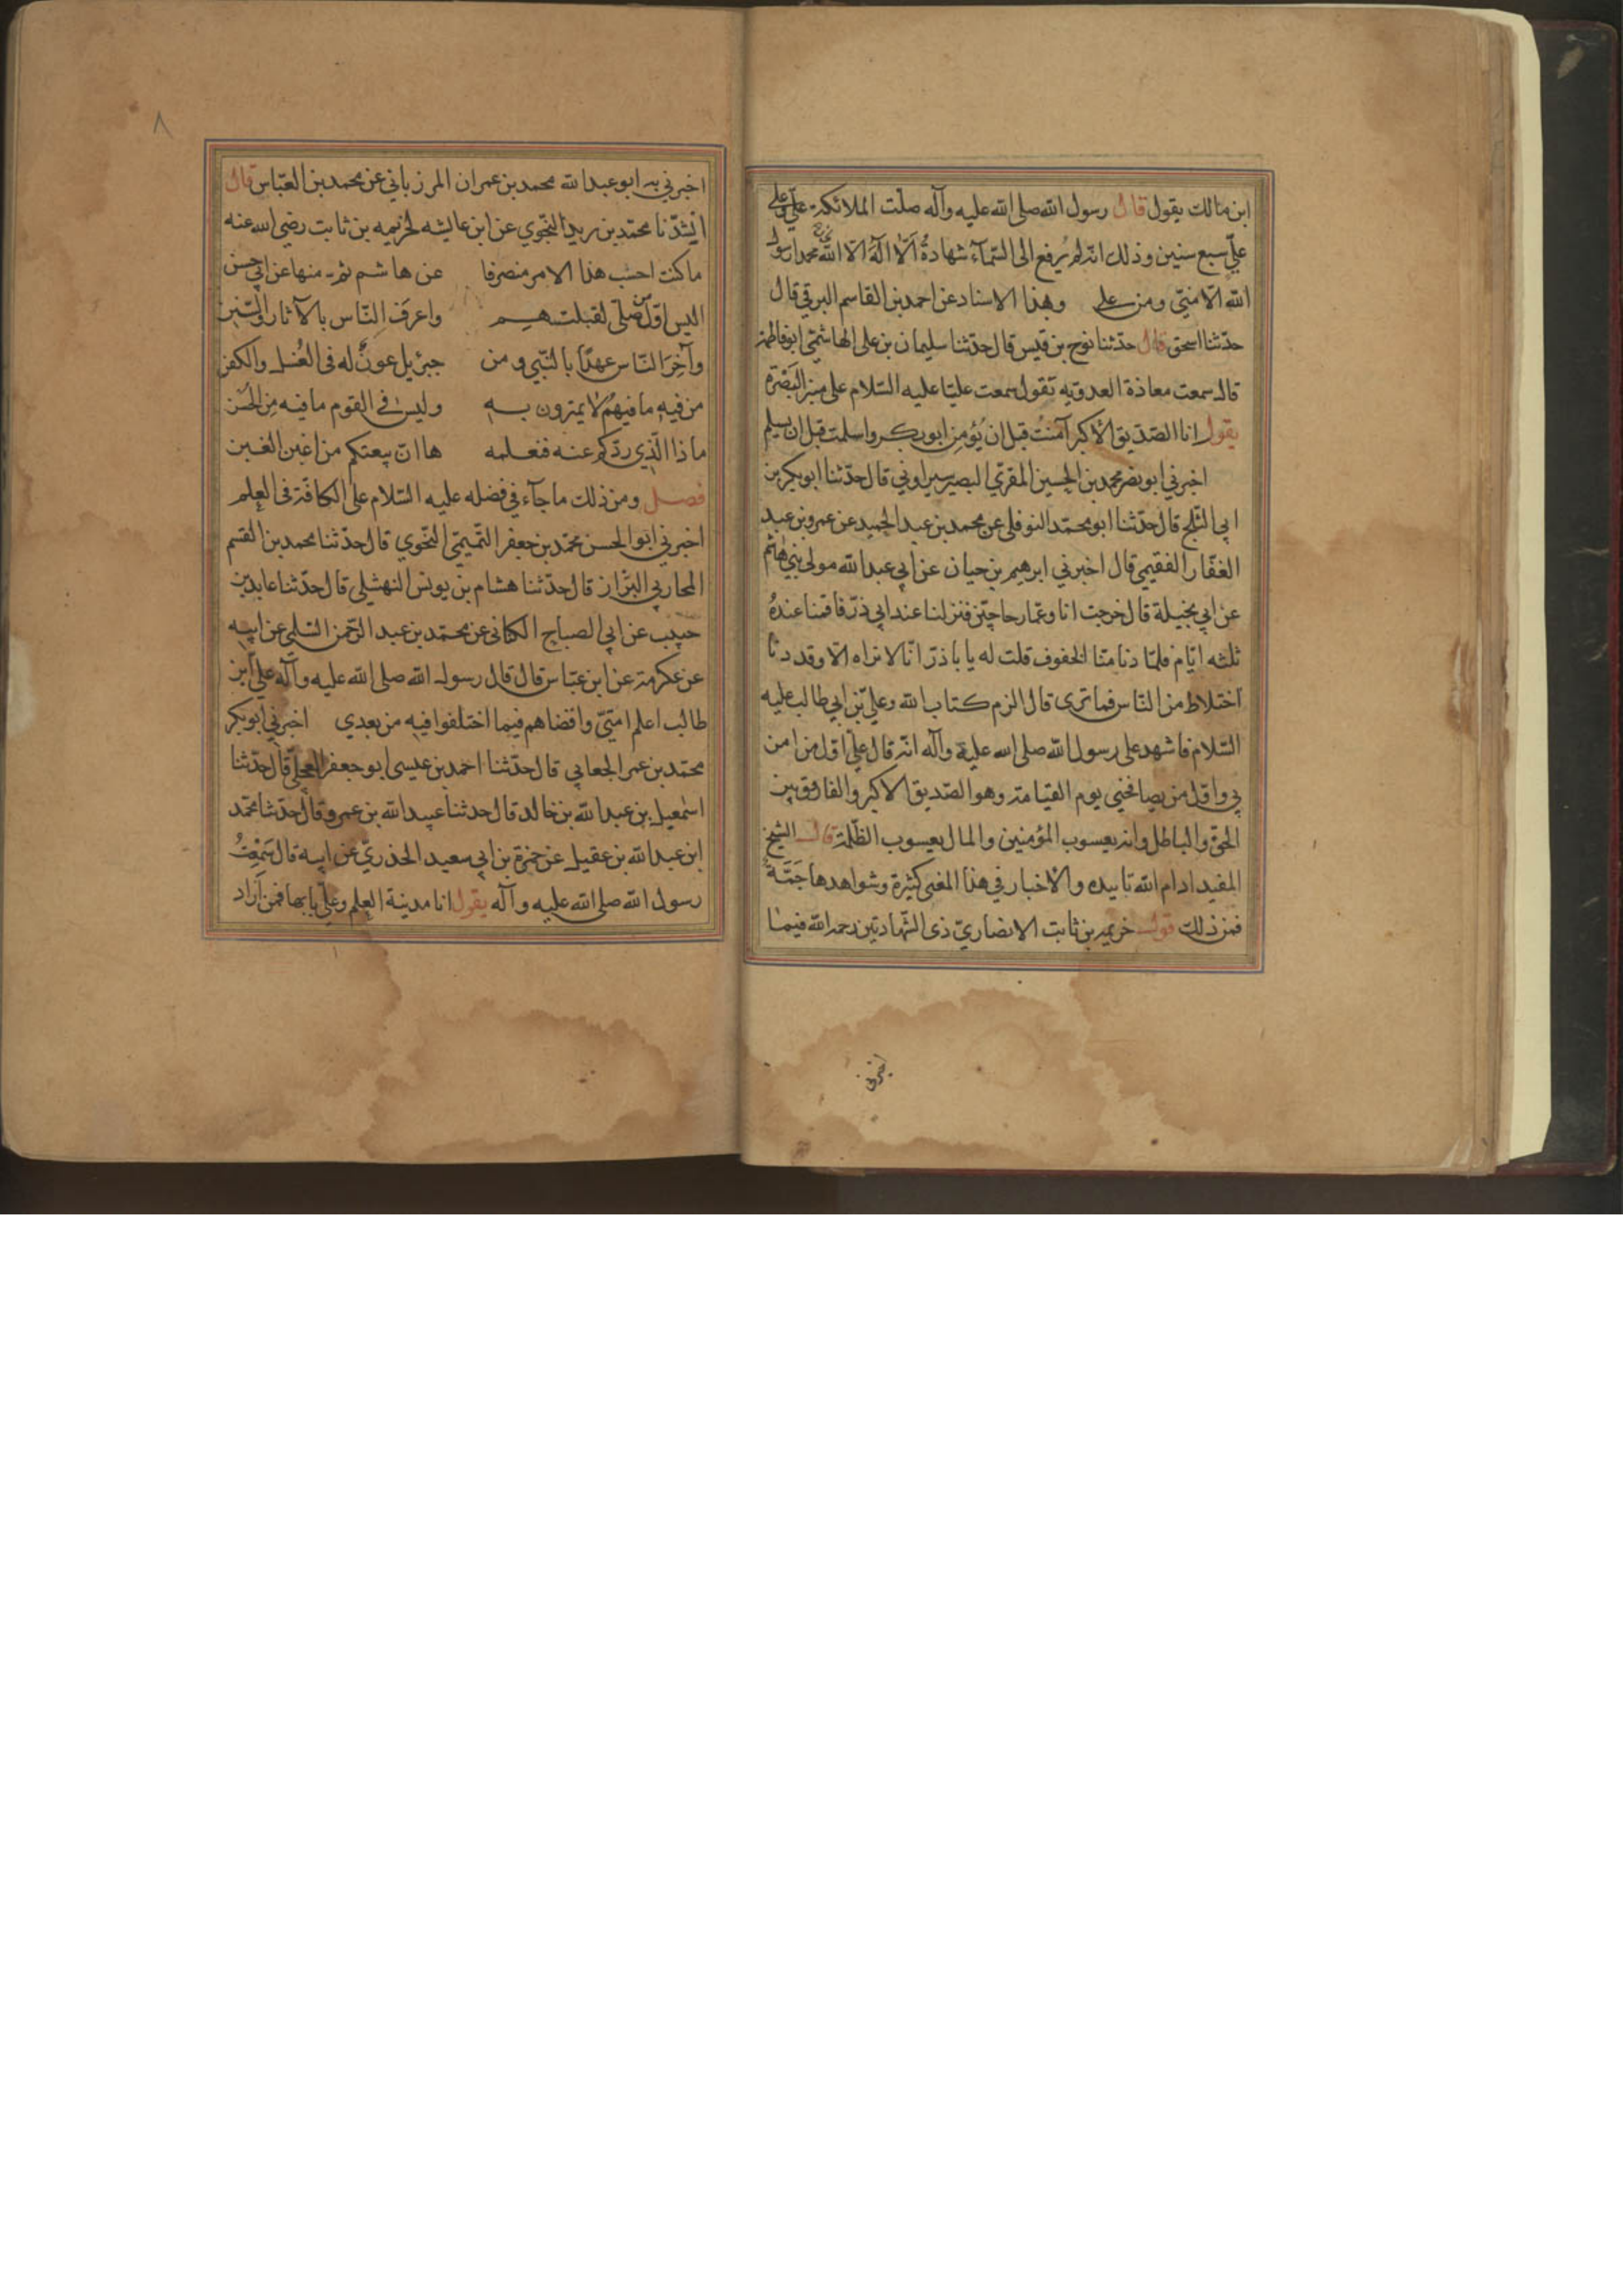 ابن مالك يقول قال رسول الله صلى الله عليه وآله صلت الملائكة عليّ وعلى
عليّ سبع سنين وذلك انه لم يُرفع الى السّمآء شهادةُ اَلّا اله الّا الله محمدا رسول
الله الّا منّي ومن علي وبهذا الاسناد عن احمد بن القاسم البرقي قال
حدّثنا اسحق قال حدثنا نوح بن قيس قال حدّثنا سليمان بن على الهاشمّي ابو فاطمة
قال سمعت معاذة العدويه تقول سمعت عليّا عليه السّلام على منبر البَصْرَة
يقول انا الصّدّيق الأكبر آمنتُ قبل ان يُؤمن ابو بكر واسلمت قبل ان يسلم
اخبرني ابو نصر محمد بن الحسين المقرّي البصير قال حدّثنا ابو بكر بن
ابي الثلج قال حدّثنا ابو محمّد النوفلى عن محمد بن عبد الحميد عن عمرو بن عبد
الغفّار الفقيمي قال اخبرني ابرهيم بن حيان عن ابي عبد الله مولى بني هاشم
عن ابي نخيلة قال خرجت انا وعمّار حاجّين فنزلنا عند ابي ذرّ فاقمنا عندهُ
ثلثه ايّام فلمّا دنا منّا الخفوف قلت له يا باذرّ انّا لا نراه الّا وقد دنا
اختلاط من النّاس فما ترى قال الزم كتاب الله وعليّ بن ابي طالب عليه
السّلام فاشهد على رسول الله صلى الله عليه وآله انّه قال عليّ اوّل من امن
بي واوّل من يصافحني يوم القيامة وهو الصّديق الاكبر والفاروق بين
الحقّ والباطل وانه يعسوب المؤمنين والمال يعسوب الظّلمة قال الشيخ
المفيد ادام الله تاييده والاخبار في هذا المعنى كثيرة وشواهدها جَمَّة
فمن ذلك قول خزيمة بن ثابت الانصاريّ ذى الشّهادتين رحمه الله فيما
اخبرني
٨
اخبرني به ابو عبد الله محمد بن عمران المرزباني عن محمد بن العبّاس قال
انشدنا محمّد بن يزيد النّحوي عن ابن عايشه لخزيمه بن ثابت رضي الله عنه
ما كنت احسب هذا الامر منصرفا عن هاشم ثم منها عن ابي حسن
اليس اوّل من صلّى لقبلتهم واعرَف النّاس بالآثار والسّنن
وآخِرَ النّاس عهدًا بالنّبي ومن جبرئيل عونٌ له فى الغُسل والكفن
من فيه ما فيهم لا يمترون به وليس في القوم ما فيه مِن الحَسن
ماذا الّذي ردّكم عنه فنعلمه ها انّ بيعتكم من اغبن الغبن
فصل ومن ذلك ما جآء في فضله عليه السّلام على الكافّة فى العِلم
اخبرني ابو الحسن محمّد بن جعفر التّميمّي النّحوي قال حدّثنا محمد بن القسم
المحاربي البزّاز قال حدّثنا هشام بن يونس النهشلي قال حدّثنا عايذ بن
حبيب عن ابي الصباح الكناني عن محمّد بن عبد الرّحمن السّلمي عن ابيه
عن عكرمة عن ابن عبّاس قال قال رسول الله صلى الله عليه وآله عليّ بن
طالب اعلم امّتيّ واقضاهم فيما اختلفوا فيه من بعدي اخبرني ابو بكر
محمّد بن عمر الجعابي قال حدّثنا احمد بن عيسى ابو جعفر العجليّ قال حدّثنا
اسمعيل بن عبد الله بن خالد قال حدثنا عبيد الله بن عمرو قال حدثنا محمّد
ابن عبد الله بن عقيل عن حمزة بن ابي سعيد الخدريّ عن ابيه قال سَمِعْتُ
رسول الله صلى الله عليه وآله يقول انا مدينة العِلم وعليّ بابها فمن اَرَاد